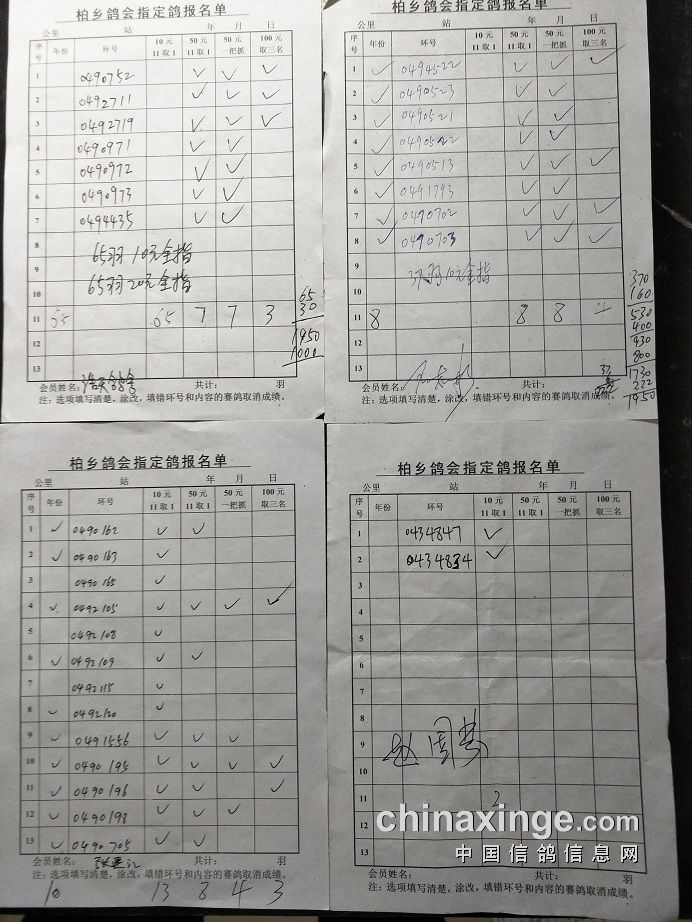 柏乡鸽会指定鸽报名单
公里 站 年 月 日
序号 年份 环号 10元11取1 50元11取1 50元一把抓 100元取三名
1 0490752 ✓ ✓ ✓
2 0492711 ✓ ✓ ✓
3 0492719 ✓ ✓ ✓
4 0490971 ✓ ✓
5 0490972 ✓ ✓
6 0490973 ✓ ✓
7 0494435 ✓ ✓
8 65羽10元全指
9 65羽20元全指
10
11 65 65 7 7 3
12
13
65
30
1950
1000
会员姓名: 共计: 羽
注:选项填写清楚,涂改,填错环号和内容的赛鸽取消成绩。
柏乡鸽会指定鸽报名单
公里 站 年 月 日
序号 年份 环号 10元11取1 50元11取1 50元一把抓 100元取三名
1 ✓ 0494522 ✓ ✓ ✓
2 ✓ 0490523 ✓ ✓
3 ✓ 0490521 ✓ ✓
4 ✓ 0490522 ✓ ✓
5 ✓ 0490513 ✓ ✓ ✓
6 ✓ 0491793 ✓ ✓
7 ✓ 0490702 ✓ ✓ ✓
8 ✓ 0490703 ✓ ✓ ✓
9 37羽10元全指
10
11 8 8 8 4
12
13
370
160
530
400
930
800
1730
222
1950
会员姓名: 共计: 羽
注:选项填写清楚,涂改,填错环号和内容的赛鸽取消成绩。
柏乡鸽会指定鸽报名单
公里 站 年 月 日
序号 年份 环号 10元11取1 50元11取1 50元一把抓 100元取三名
1 ✓ 0490162 ✓ ✓
2 ✓ 0490163 ✓
3 0490165 ✓
4 ✓ 0492105 ✓ ✓ ✓ ✓
5 0492108 ✓
6 ✓ 0492109 ✓ ✓
7 0492115 ✓
8 ✓ 0492120 ✓
9 ✓ 0491556 ✓ ✓ ✓
10 ✓ 0490195 ✓ ✓ ✓ ✓
11 ✓ 0490196 ✓ ✓ ✓
12 ✓ 0490198 ✓ ✓ ✓
13 ✓ 0490705 ✓ ✓
会员姓名: 共计: 羽
注:选项填写清楚,涂改,填错环号和内容的赛鸽取消成绩。
10 13 8 4 3
柏乡鸽会指定鸽报名单
公里 站 年 月 日
序号 年份 环号 10元11取1 50元11取1 50元一把抓 100元取三名
1 0434847 ✓
2 0434834 ✓
3
4
5
6
7
8
9
10
11 2
12
13
会员姓名: 共计: 羽
注:选项填写清楚,涂改,填错环号和内容的赛鸽取消成绩。
chinaxinge.com
中国信鸽信息网